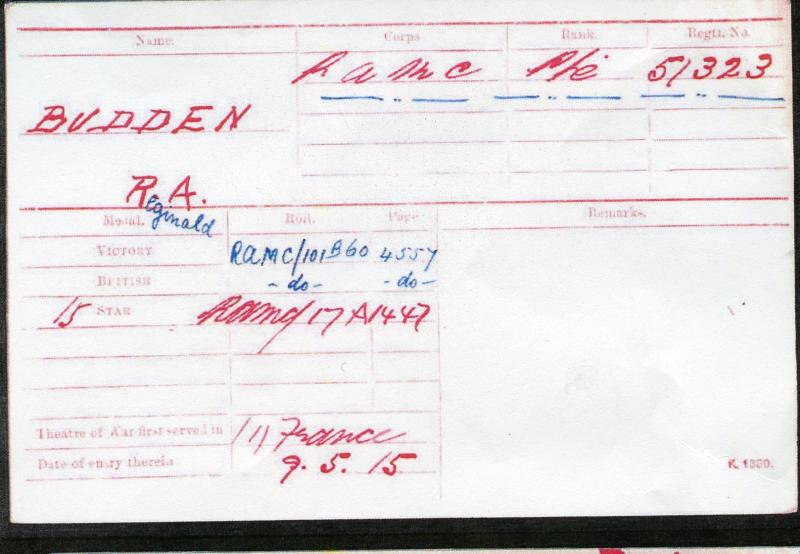 Name. Corps Rank. Regtl. No.
RAMC Pte 51323
BUDDEN
R.A.
Reginald
Medal. Roll. Page
Remarks.
VICTORY RAMC/101 B60 4557
BRITISH - do - - do -
15 STAR RAMC/17A 1447
Theatre of War first served in (1) France
Date of entry therein 9.5.15
K. 1380.